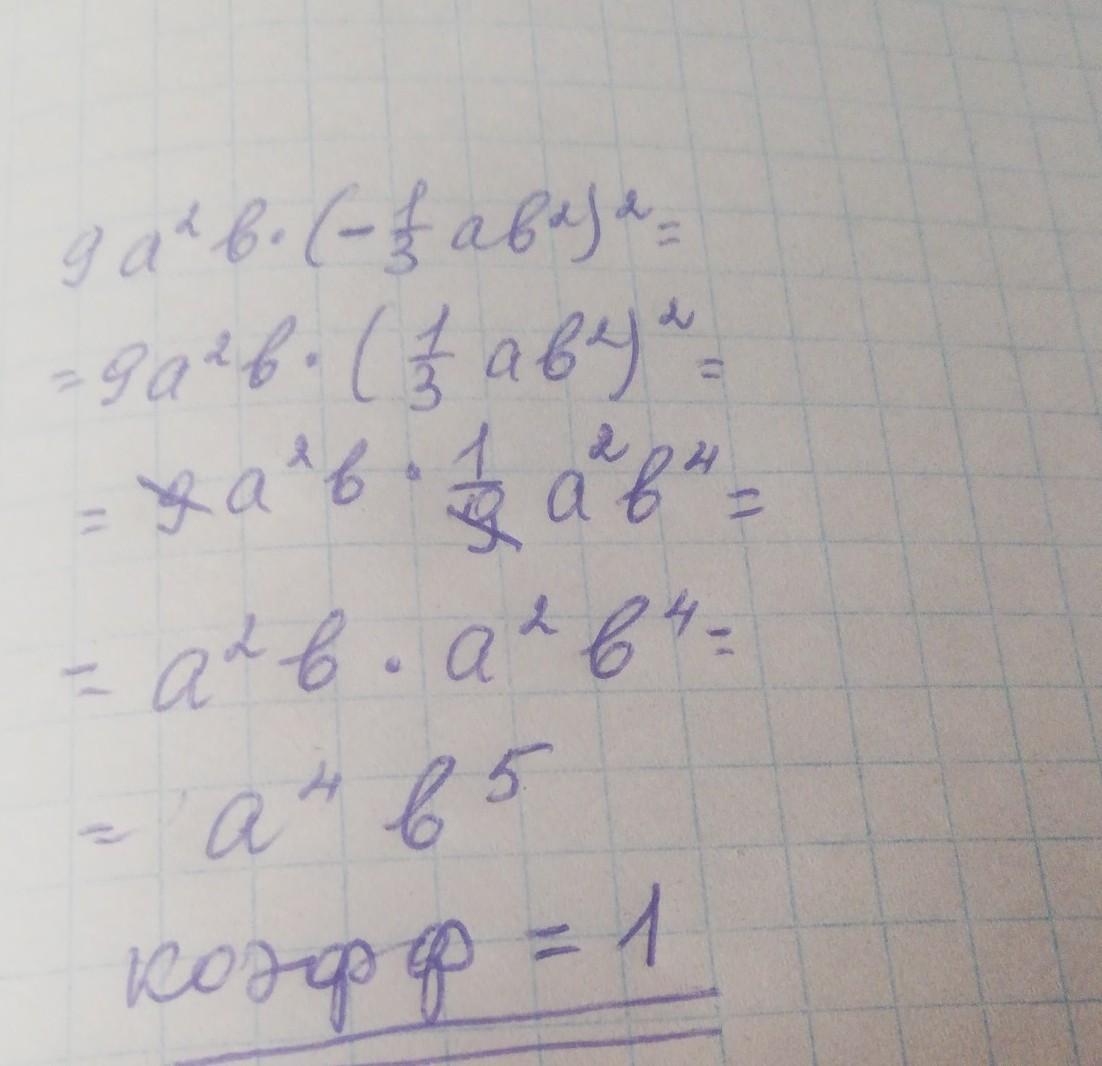 9a²b·(-1/3 ab²)²=
=9a²b·(1/3 ab²)²=
=9a²b·1/9 a²b⁴=
=a²b·a²b⁴=
=a⁴b⁵
коэфф = 1